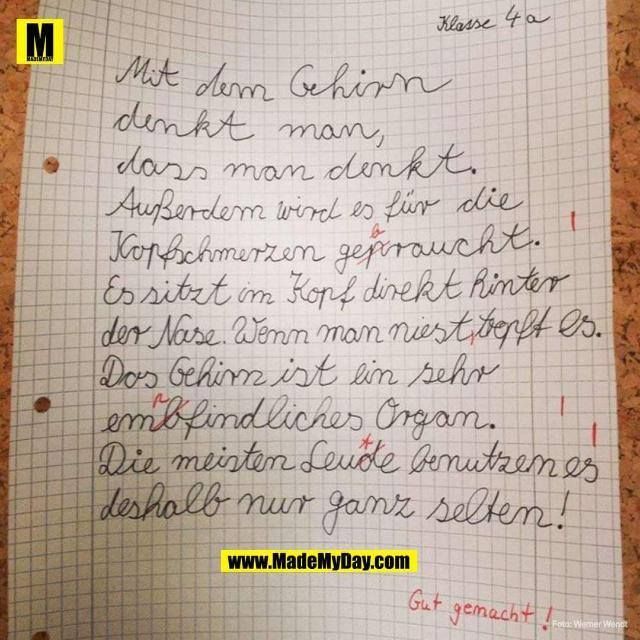 M
MADEMYDAY
Klasse 4a
Mit dem Gehirn
denkt man,
dass man denkt.
Außerdem wird es für die
b
Kopfschmerzen gepraucht.
Es sitzt im Kopf direkt hinter
der Nase. Wenn man niest, tropft es.
Das Gehirn ist ein sehr
p
embfindliches Organ.
t
Die meisten Leude benutzen es
deshalb nur ganz selten!
www.MadeMyDay.com
Gut gemacht!
Foto: Werner Wendt